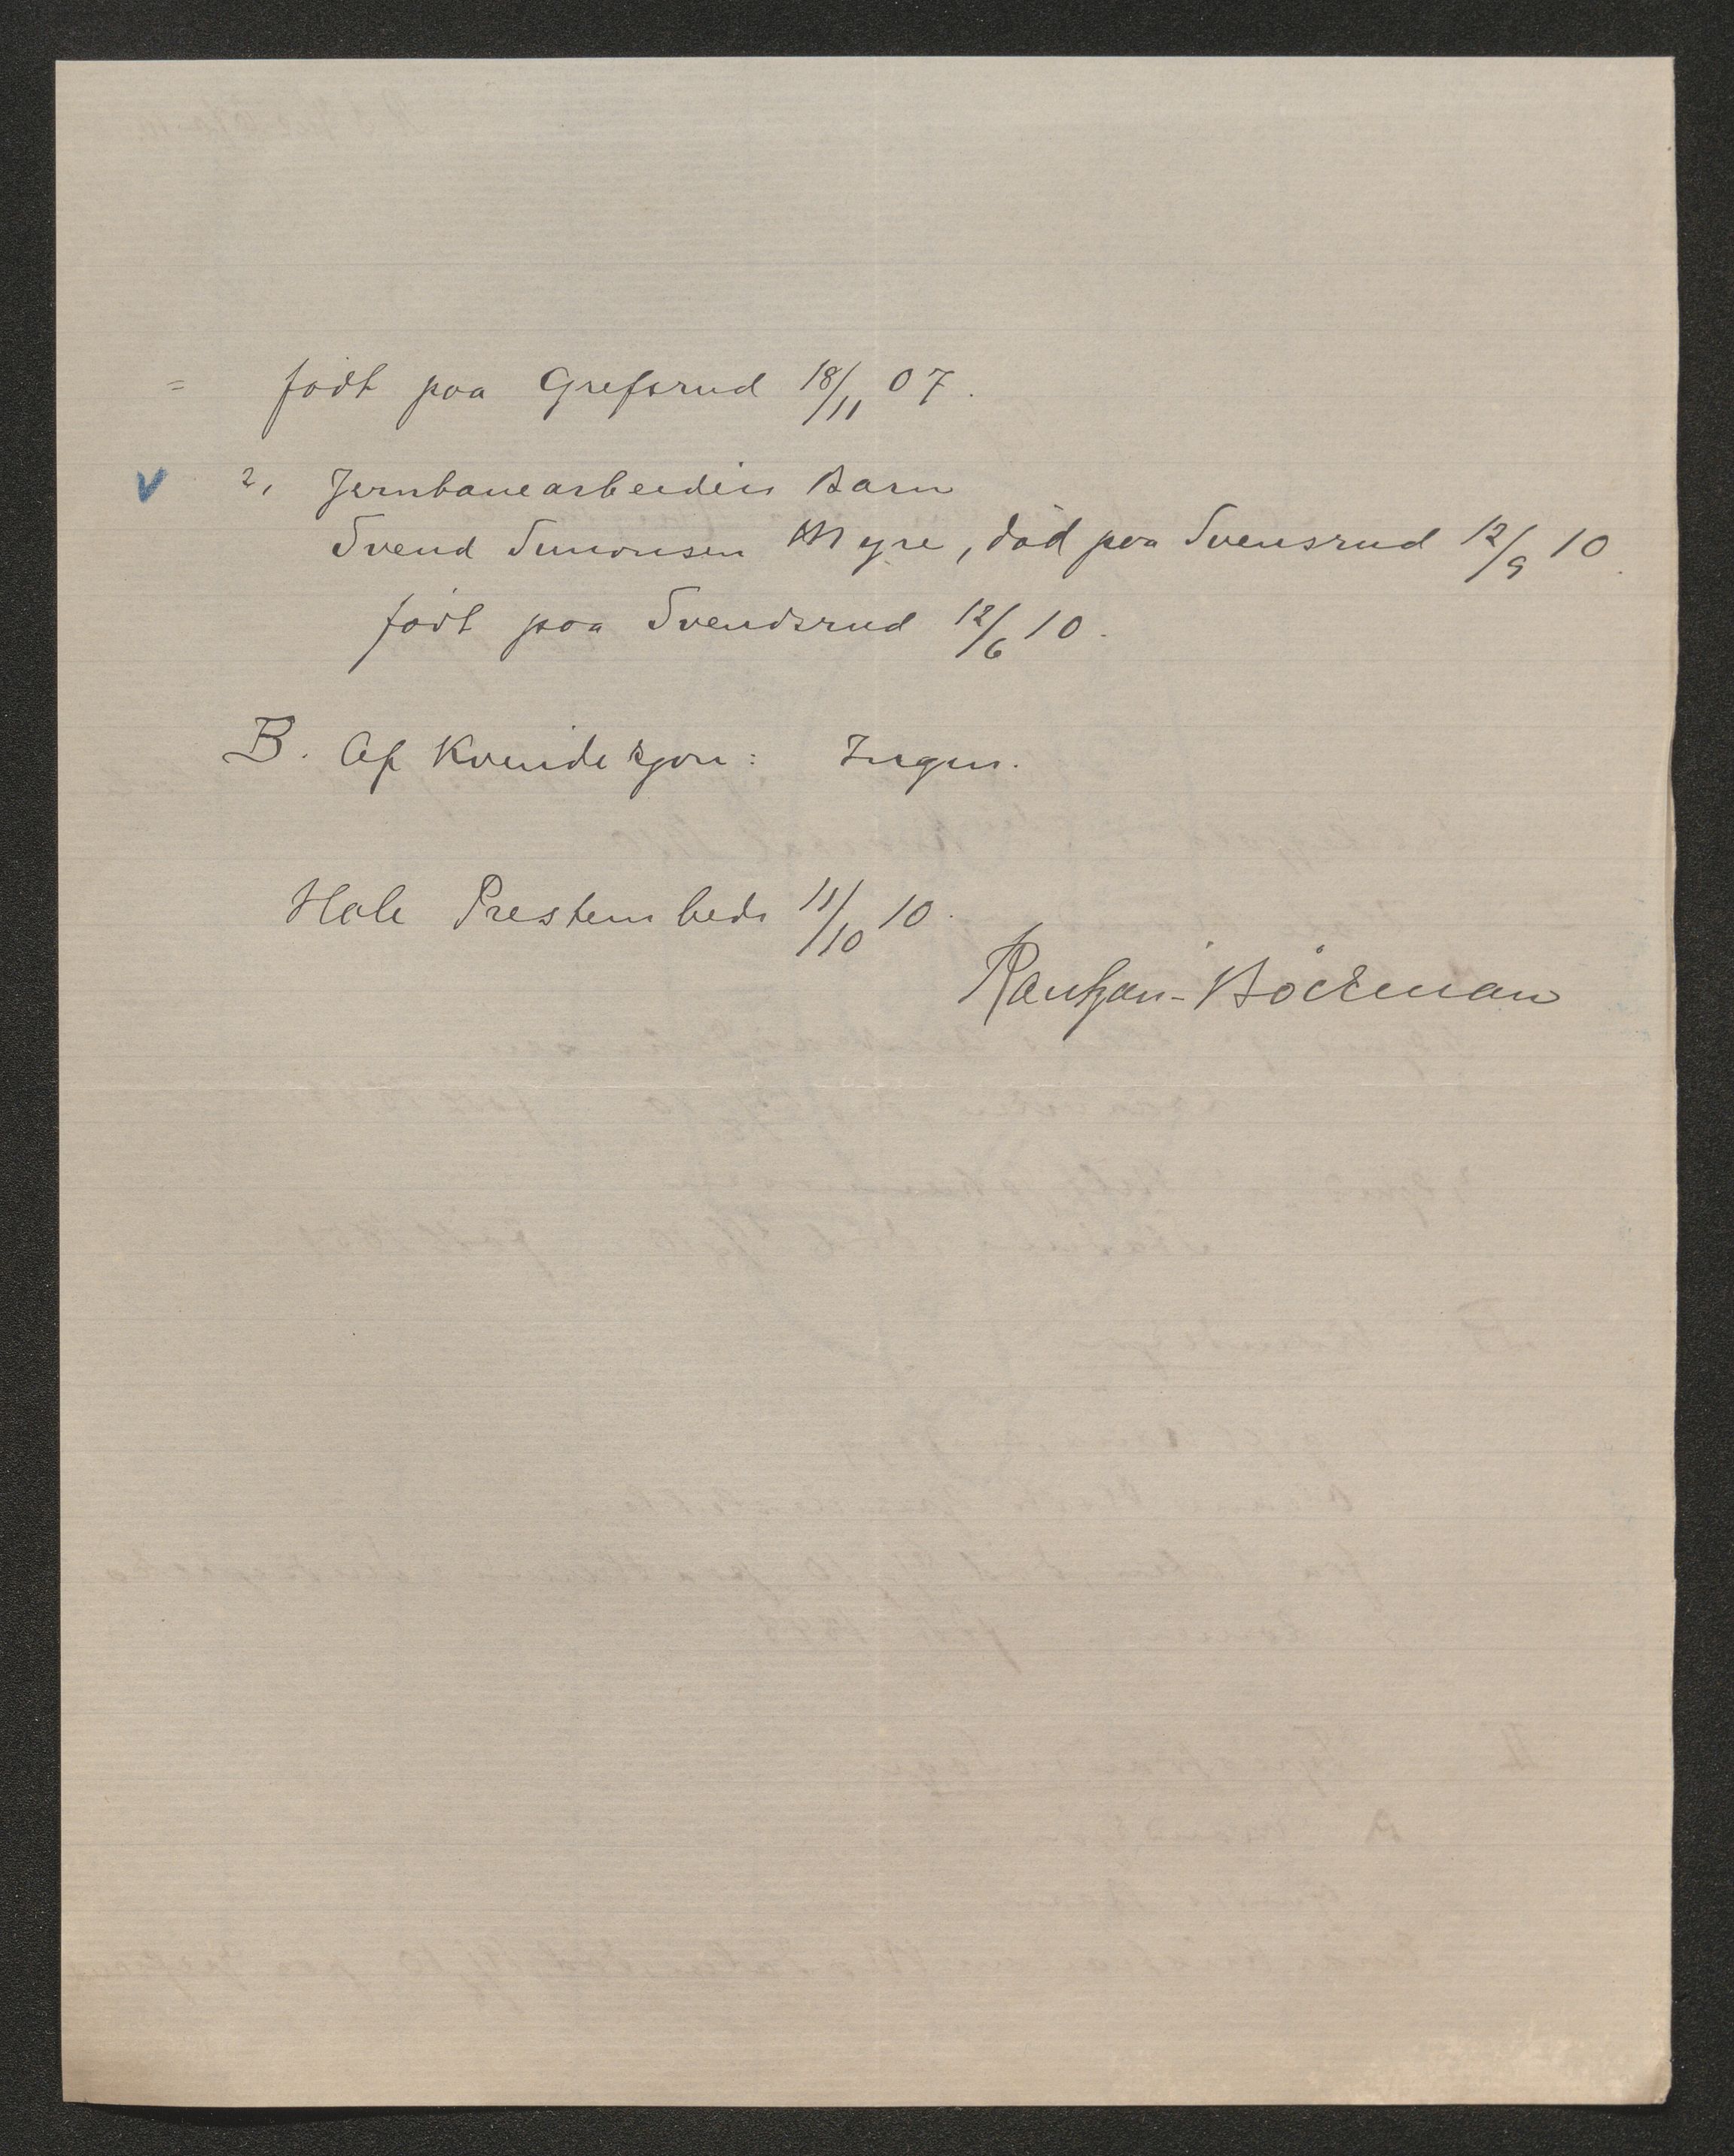 = født paa Grefsrud 18/11 07.
v 2, Jernbanearbeiders Barn
Svend Simonsen Myre, død paa Svensrud 12/9 10.
født paa Svendsrud 12/6 10.
B. Af Kvindekjøn: Ingen.
Hole Prestembede 11/10 10.
Rantzau-Böckman